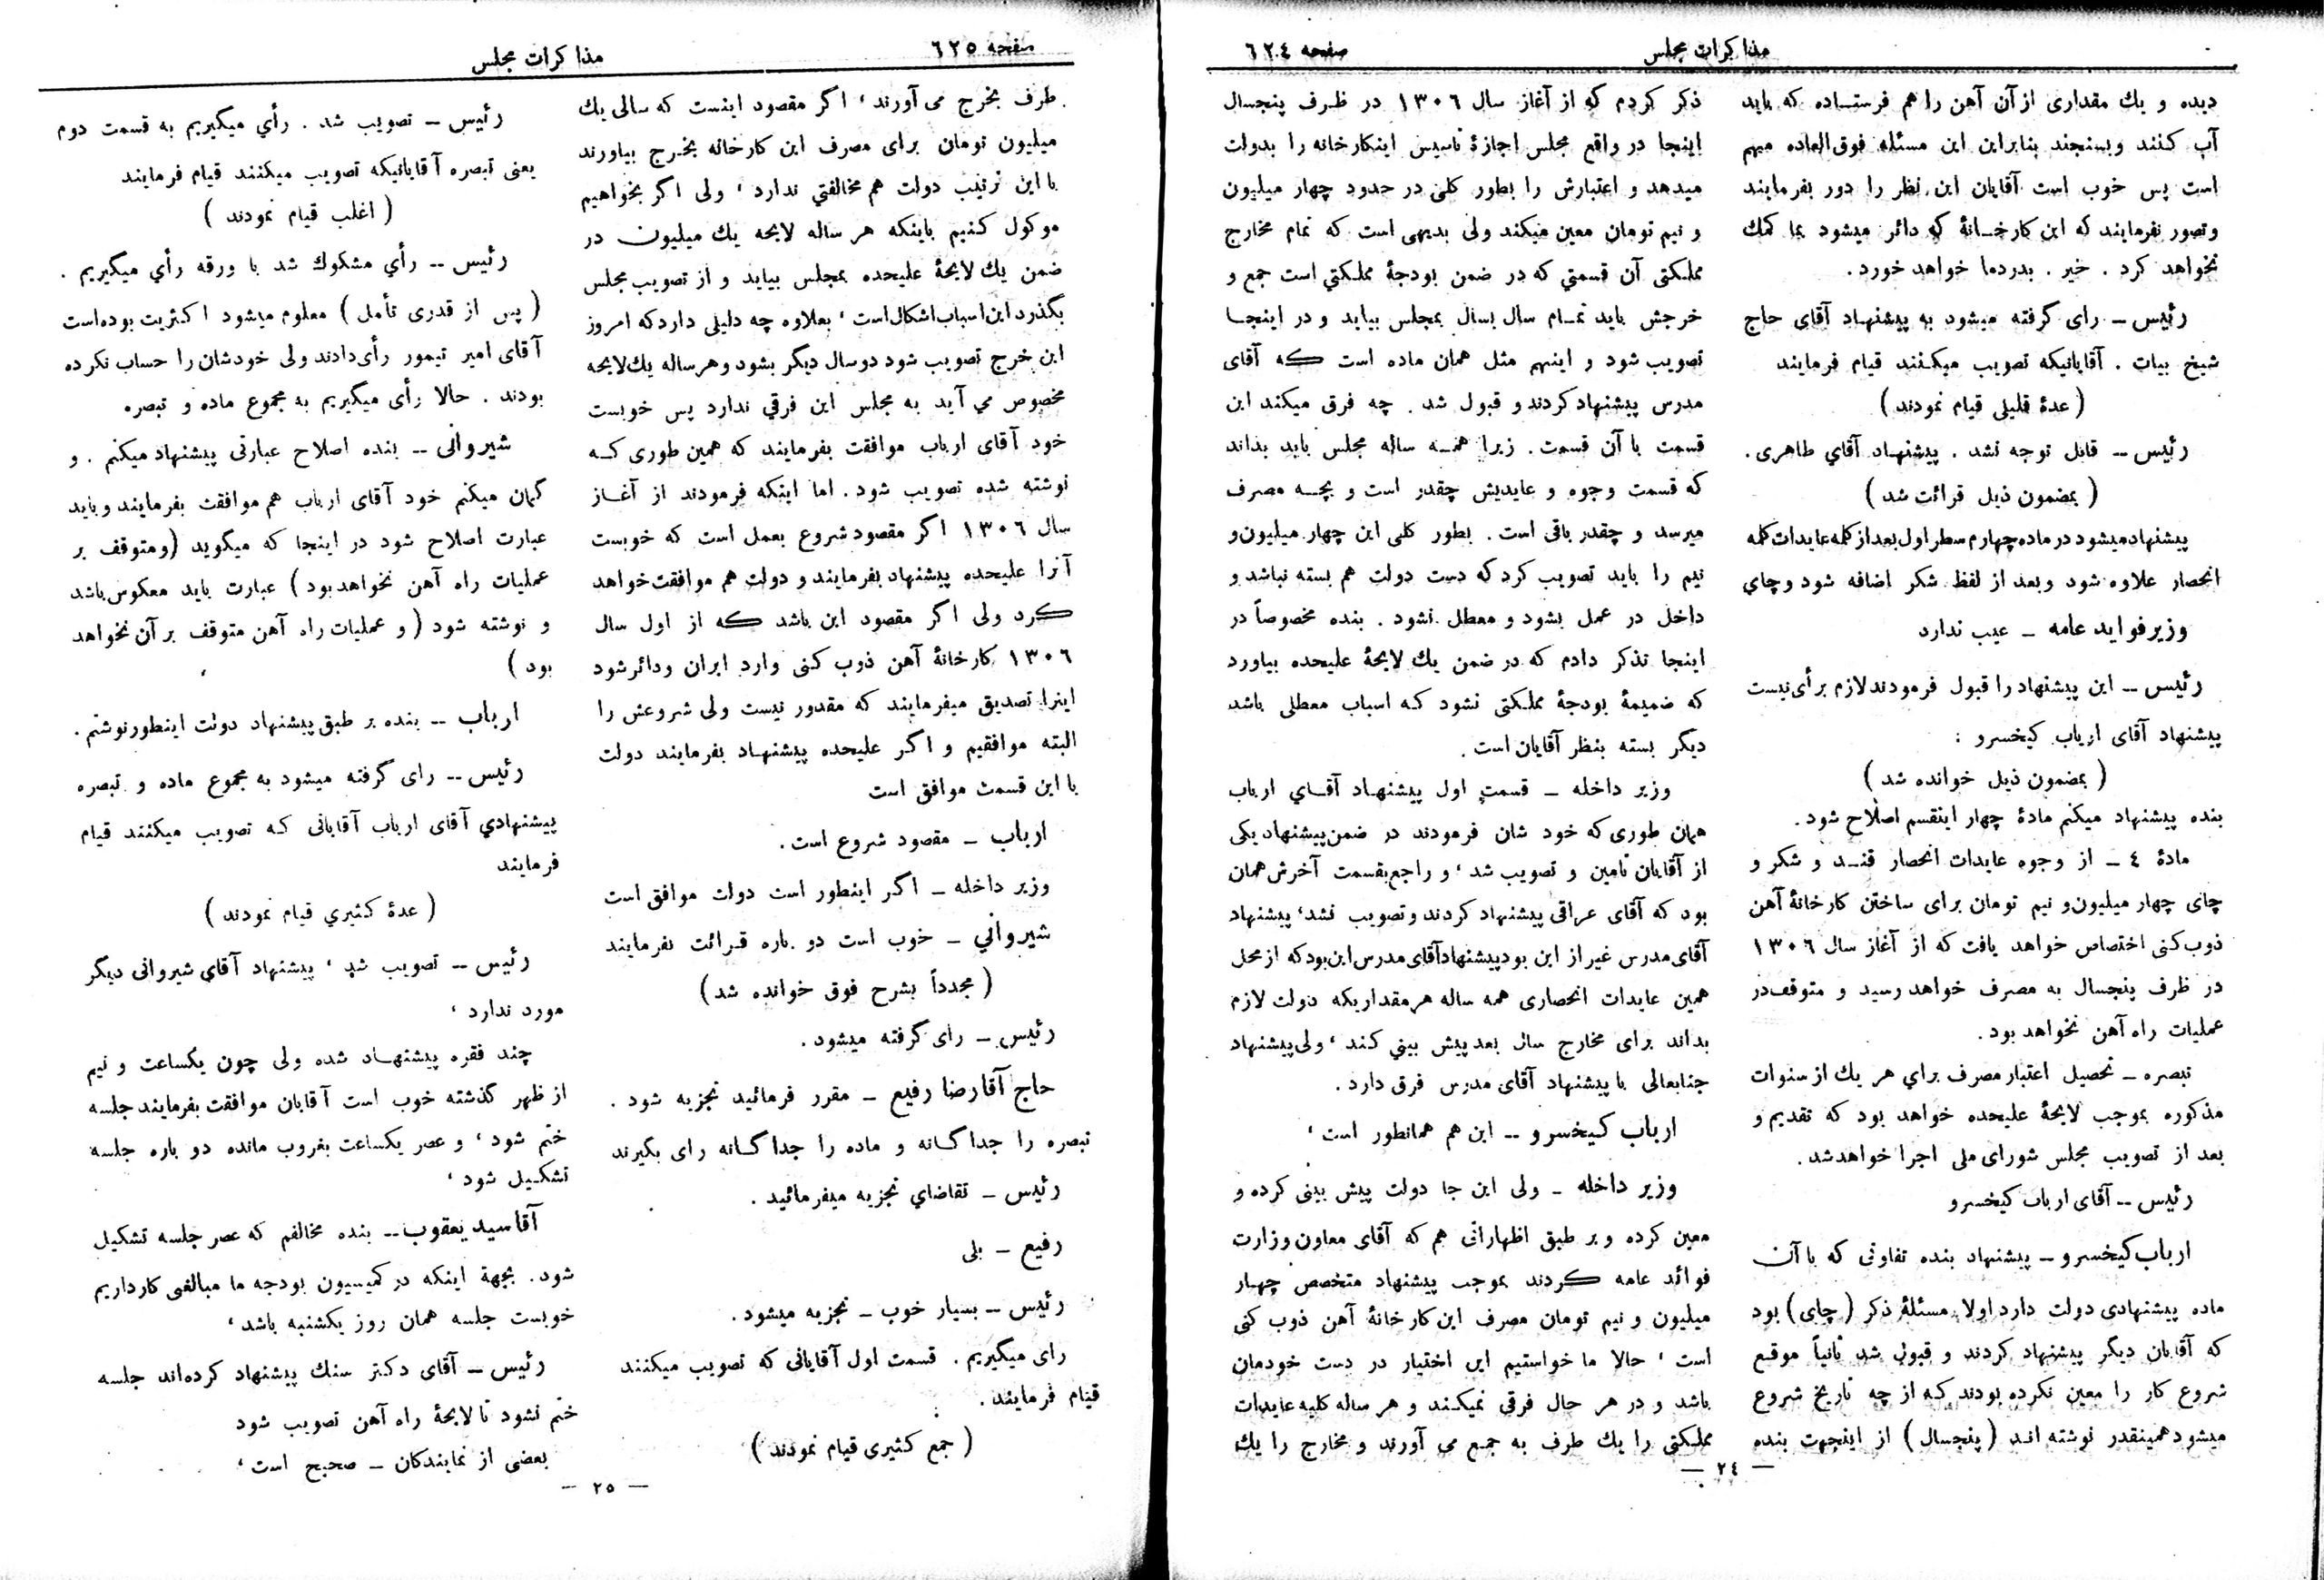 صفحه ٦٢٤
مذاكرات مجلس
ديده و يك مقدارى از آن آهن را هم فرستاده كه بايد
آب كنند و بسنجند بنابراين اين مسئله فوق‌العاده مهم
است پس خوب است آقايان اين نظر را دور بفرمايند
و تصور نفرمايند كه اين كارخانهٔ كه دائر ميشود بما كمك
نخواهد كرد . خير . بدردما خواهد خورد .
رئيس – راى گرفته ميشود به پيشنهاد آقاى حاج
شيخ بيات . آقايانيكه تصويب ميكنند قيام فرمايند
( عدهٔ قليلى قيام نمودند )
رئيس – قابل توجه نشد . پيشنهاد آقاي طاهرى .
( بمضمون ذيل قرائت شد )
پيشنهاد ميشود در ماده چهارم سطر اول بعد از كلمه عايدات كلمه
انحصار علاوه شود و بعد از لفظ شكر اضافه شود و چاي
وزير فوايد عامه – عيب ندارد
رئيس – اين پيشنهاد را قبول فرمودند لازم برأى نيست
پيشنهاد آقاى ارباب كيخسرو :
( بمضمون ذيل خوانده شد )
بنده پيشنهاد ميكنم مادهٔ چهار اينقسم اصلاح شود .
مادهٔ ٤ – از وجوه عايدات انحصار قند و شكر و
چاى چهار ميليون‌و نيم تومان براى ساختن كارخانهٔ آهن
ذوب‌كنى اختصاص خواهد يافت كه از آغاز سال ١٣٠٦
در ظرف پنجسال به مصرف خواهد رسيد و متوقف‌در
عمليات راه آهن نخواهد بود .
تبصره – تحصيل اعتبار مصرف براي هر يك از سنوات
مذكوره بموجب لايحهٔ عليحده خواهد بود كه تقديم و
بعد از تصويب مجلس شوراى ملى اجرا خواهدشد .
رئيس – آقاى ارباب كيخسرو
ارباب كيخسرو – پيشنهاد بنده تفاوتى كه با آن
ماده پيشنهادى دولت دارد اولا مسئلهٔ ذكر ( چاى ) بود
كه آقايان ديگر پيشنهاد كردند و قبول شد ثانياً موقع
شروع كار را معين نكرده بودند كه از چه تاريخ شروع
ميشود همينقدر نوشته اند ( پنجسال ) از اينجهت بنده
ذكر كردم كه از آغاز سال ١٣٠٦ در ظرف پنجسال
اينجا در واقع مجلس اجازهٔ تأسيس اينكارخانه را بدولت
ميدهد و اعتبارش را بطور كلى در حدود چهار ميليون
و نيم تومان معين ميكند ولى بديهى است كه تمام مخارج
مملكتى آن قسمتي كه در ضمن بودجهٔ مملكتي است جمع و
خرجش بايد تمام سال بسال بمجلس بيايد و در اينجا
تصويب شود و اينهم مثل همان ماده است كه آقاى
مدرس پيشنهاد كردند و قبول شد . چه فرق ميكند اين
قسمت با آن قسمت . زيرا همه ساله مجلس بايد بداند
كه قسمت وجوه و عايديش چقدر است و بچه مصرف
ميرسد و چقدر باقى است . بطور كلى اين چهار ميليون‌و
نيم را بايد تصويب كرد كه دست دولت هم بسته نباشد و
داخل در عمل بشود و معطل نشود . بنده مخصوصاً در
اينجا تذكر دادم كه در ضمن يك لايحهٔ عليحده بياورد
كه ضميمهٔ بودجهٔ مملكتى نشود كه اسباب معطلى باشد
ديگر بسته بنظر آقايان است .
وزير داخله – قسمت اول پيشنهاد آقاي ارباب
همان طورى كه خود شان فرمودند در ضمن پيشنهاد يكى
از آقايان تامين و تصويب شد ، و راجع بقسمت آخرش همان
بود كه آقاى عراقى پيشنهاد كردند و تصويب نشد، پيشنهاد
آقاى مدرس غير از اين بود پيشنهاد آقاى مدرس اين بود كه از محل
همين عايدات انحصارى همه ساله هر مقداريكه دولت لازم
بداند براى مخارج سال بعد پيش بيني كند ، ولى پيشنهاد
جنابعالى با پيشنهاد آقاى مدرس فرق دارد .
ارباب كيخسرو – اين هم همانطور است ،
وزير داخله – ولى اين جا دولت پيش بينى كرده و
معين كرده و بر طبق اظهاراتى هم كه آقاى معاون وزارت
فوائد عامه كردند بموجب پيشنهاد متخصص چهار
ميليون و نيم تومان مصرف اين كارخانهٔ آهن ذوب كنى
است ، حالا ما خواستيم اين اختيار در دست خودمان
باشد و در هر حال فرقى نميكند و هر ساله كليه عايدات
مملكتى را يك طرف به جمع مى آورند و مخارج را يك
— ٢٤ —
صفحه ٦٢٥
مذاكرات مجلس
طرف بخرج مى آورند ، اگر مقصود اينست كه سالى يك
ميليون تومان براى مصرف اين كارخانه بخرج بياورند
با اين ترتيب دولت هم مخالفتي ندارد ، ولى اگر بخواهيم
موكول كنيم باينكه هر ساله لايحه يك ميليون در
ضمن يك لايحهٔ عليحده بمجلس بيايد و از تصويب مجلس
بگذرد اين اسباب اشكال است ، بعلاوه چه دليلى دارد كه امروز
اين خرج تصويب شود دو سال ديگر بشود و هر ساله يك لايحه
مخصوص مي آيد به مجلس اين فرقي ندارد پس خوبست
خود آقاى ارباب موافقت بفرمايند كه همين طورى كه
نوشته شده تصويب شود . اما اينكه فرمودند از آغاز
سال ١٣٠٦ اگر مقصود شروع بعمل است كه خوبست
آنرا عليحده پيشنهاد بفرمايند و دولت هم موافقت خواهد
كرد ولى اگر مقصود اين باشد كه از اول سال
١٣٠٦ كارخانهٔ آهن ذوب كنى وارد ايران ودائر شود
اينرا تصديق ميفرمايند كه مقدور نيست ولى شروعش را
البته موافقيم و اگر عليحده پيشنهاد بفرمايند دولت
با اين قسمت موافق است
ارباب – مقصود شروع است .
وزير داخله – اگر اينطور است دولت موافق است
شيرواني – خوب است دو باره قرائت بفرمايند
( مجدداً بشرح فوق خوانده شد )
رئيس – راى گرفته ميشود .
حاج آقارضا رفيع – مقرر فرمائيد تجزيه شود .
تبصره را جدا گانه و ماده را جدا گانه راى بگيرند
رئيس – تقاضاي تجزيه ميفرمائيد .
رفيع – بلى
رئيس – بسيار خوب – تجزيه ميشود .
راى ميگيريم . قسمت اول آقايانى كه تصويب ميكنند
قيام فرمايند .
( جمع كثيرى قيام نمودند )
رئيس – تصويب شد . رأي ميگيريم به قسمت دوم
يعنى تبصره آقايانيكه تصويب ميكنند قيام فرمايند
( اغلب قيام نمودند )
رئيس – رأي مشكوك شد با ورقه رأي ميگيريم .
( پس از قدرى تأمل ) معلوم ميشود اكثريت بوده‌است
آقاى امير تيمور رأى‌دادند ولى خودشان را حساب نكرده
بودند . حالا رأى ميگيريم به مجموع ماده و تبصره
شيروانى – بنده اصلاح عبارتى پيشنهاد ميكنم . و
گمان ميكنم خود آقاى ارباب هم موافقت بفرمايند و بايد
عبارت اصلاح شود در اينجا كه ميگويد (ومتوقف بر
عمليات راه آهن نخواهد بود ) عبارت بايد معكوس باشد
و نوشته شود ( و عمليات راه آهن متوقف بر آن نخواهد
بود )
ارباب – بنده بر طبق پيشنهاد دولت اينطور نوشتم .
رئيس – راى گرفته ميشود به مجموع ماده و تبصره
پيشنهادي آقاى ارباب آقايانى كه تصويب ميكنند قيام
فرمايند
( عدهٔ كثيري قيام نمودند )
رئيس – تصويب شد ، پيشنهاد آقاى شيروانى ديگر
مورد ندارد ،
چند فقره پيشنهاد شده ولى چون يكساعت و نيم
از ظهر گذشته خوب است آقايان موافقت بفرمايند جلسه
ختم شود ، و عصر يكساعت بغروب مانده دو باره جلسه
تشكيل شود ،
آقا سيد يعقوب – بنده مخالفم كه عصر جلسه تشكيل
شود . بجهة اينكه در كميسيون بودجه ما مبالغى كار داريم
خوبست جلسه همان روز يكشنبه باشد ،
رئيس – آقاى دكتر سنك پيشنهاد كرده‌اند جلسه
ختم نشود تا لايحهٔ راه آهن تصويب شود
بعضى از نمايندگان – صحيح است ،
— ٢٥ —